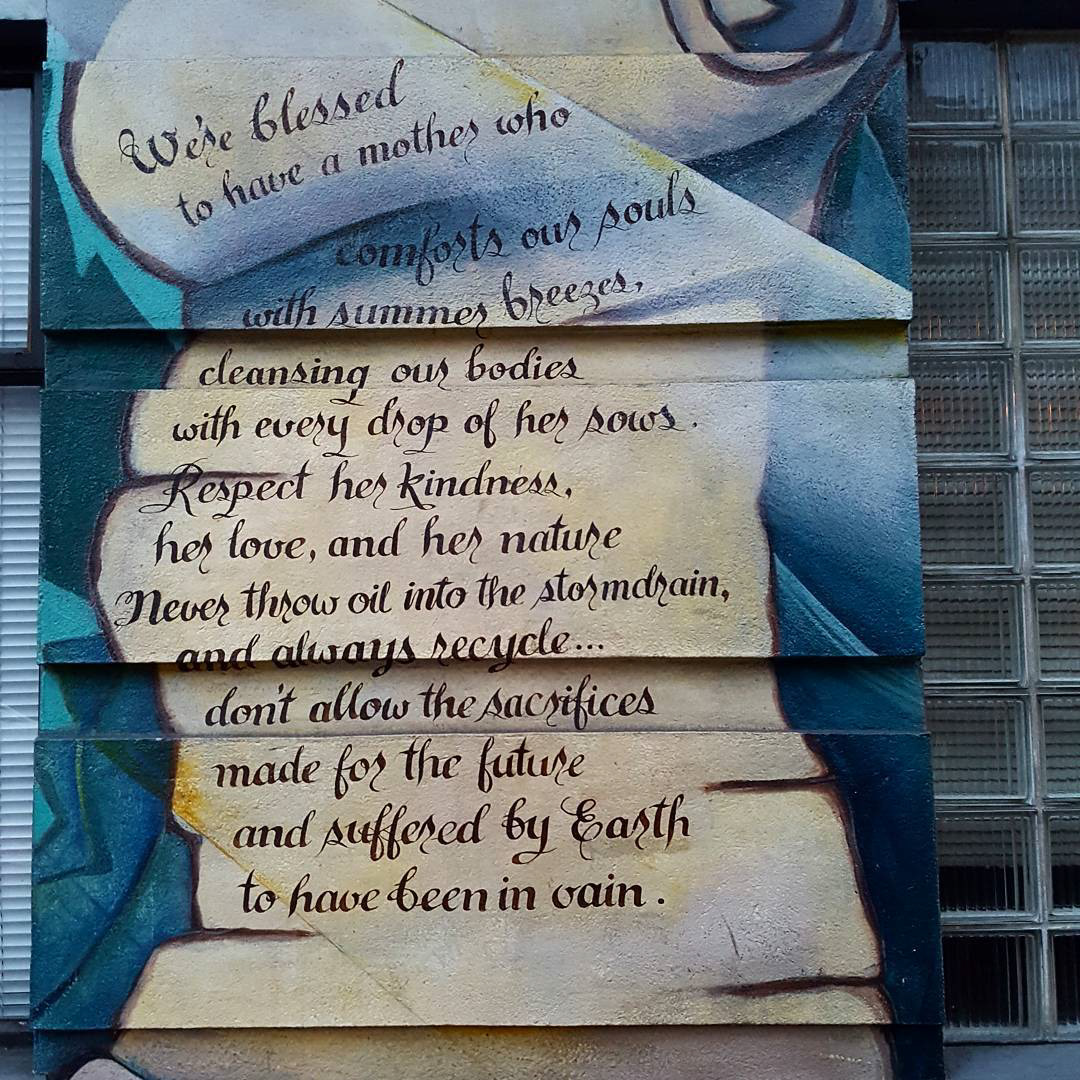 We're blessed
to have a mother who
comforts our souls
with summer breezes,
cleansing our bodies
with every drop of her sows.
Respect her kindness,
her love, and her nature
Never throw oil into the stormdrain,
and always recycle...
don't allow the sacrifices
made for the future
and suffered by Earth
to have been in vain.